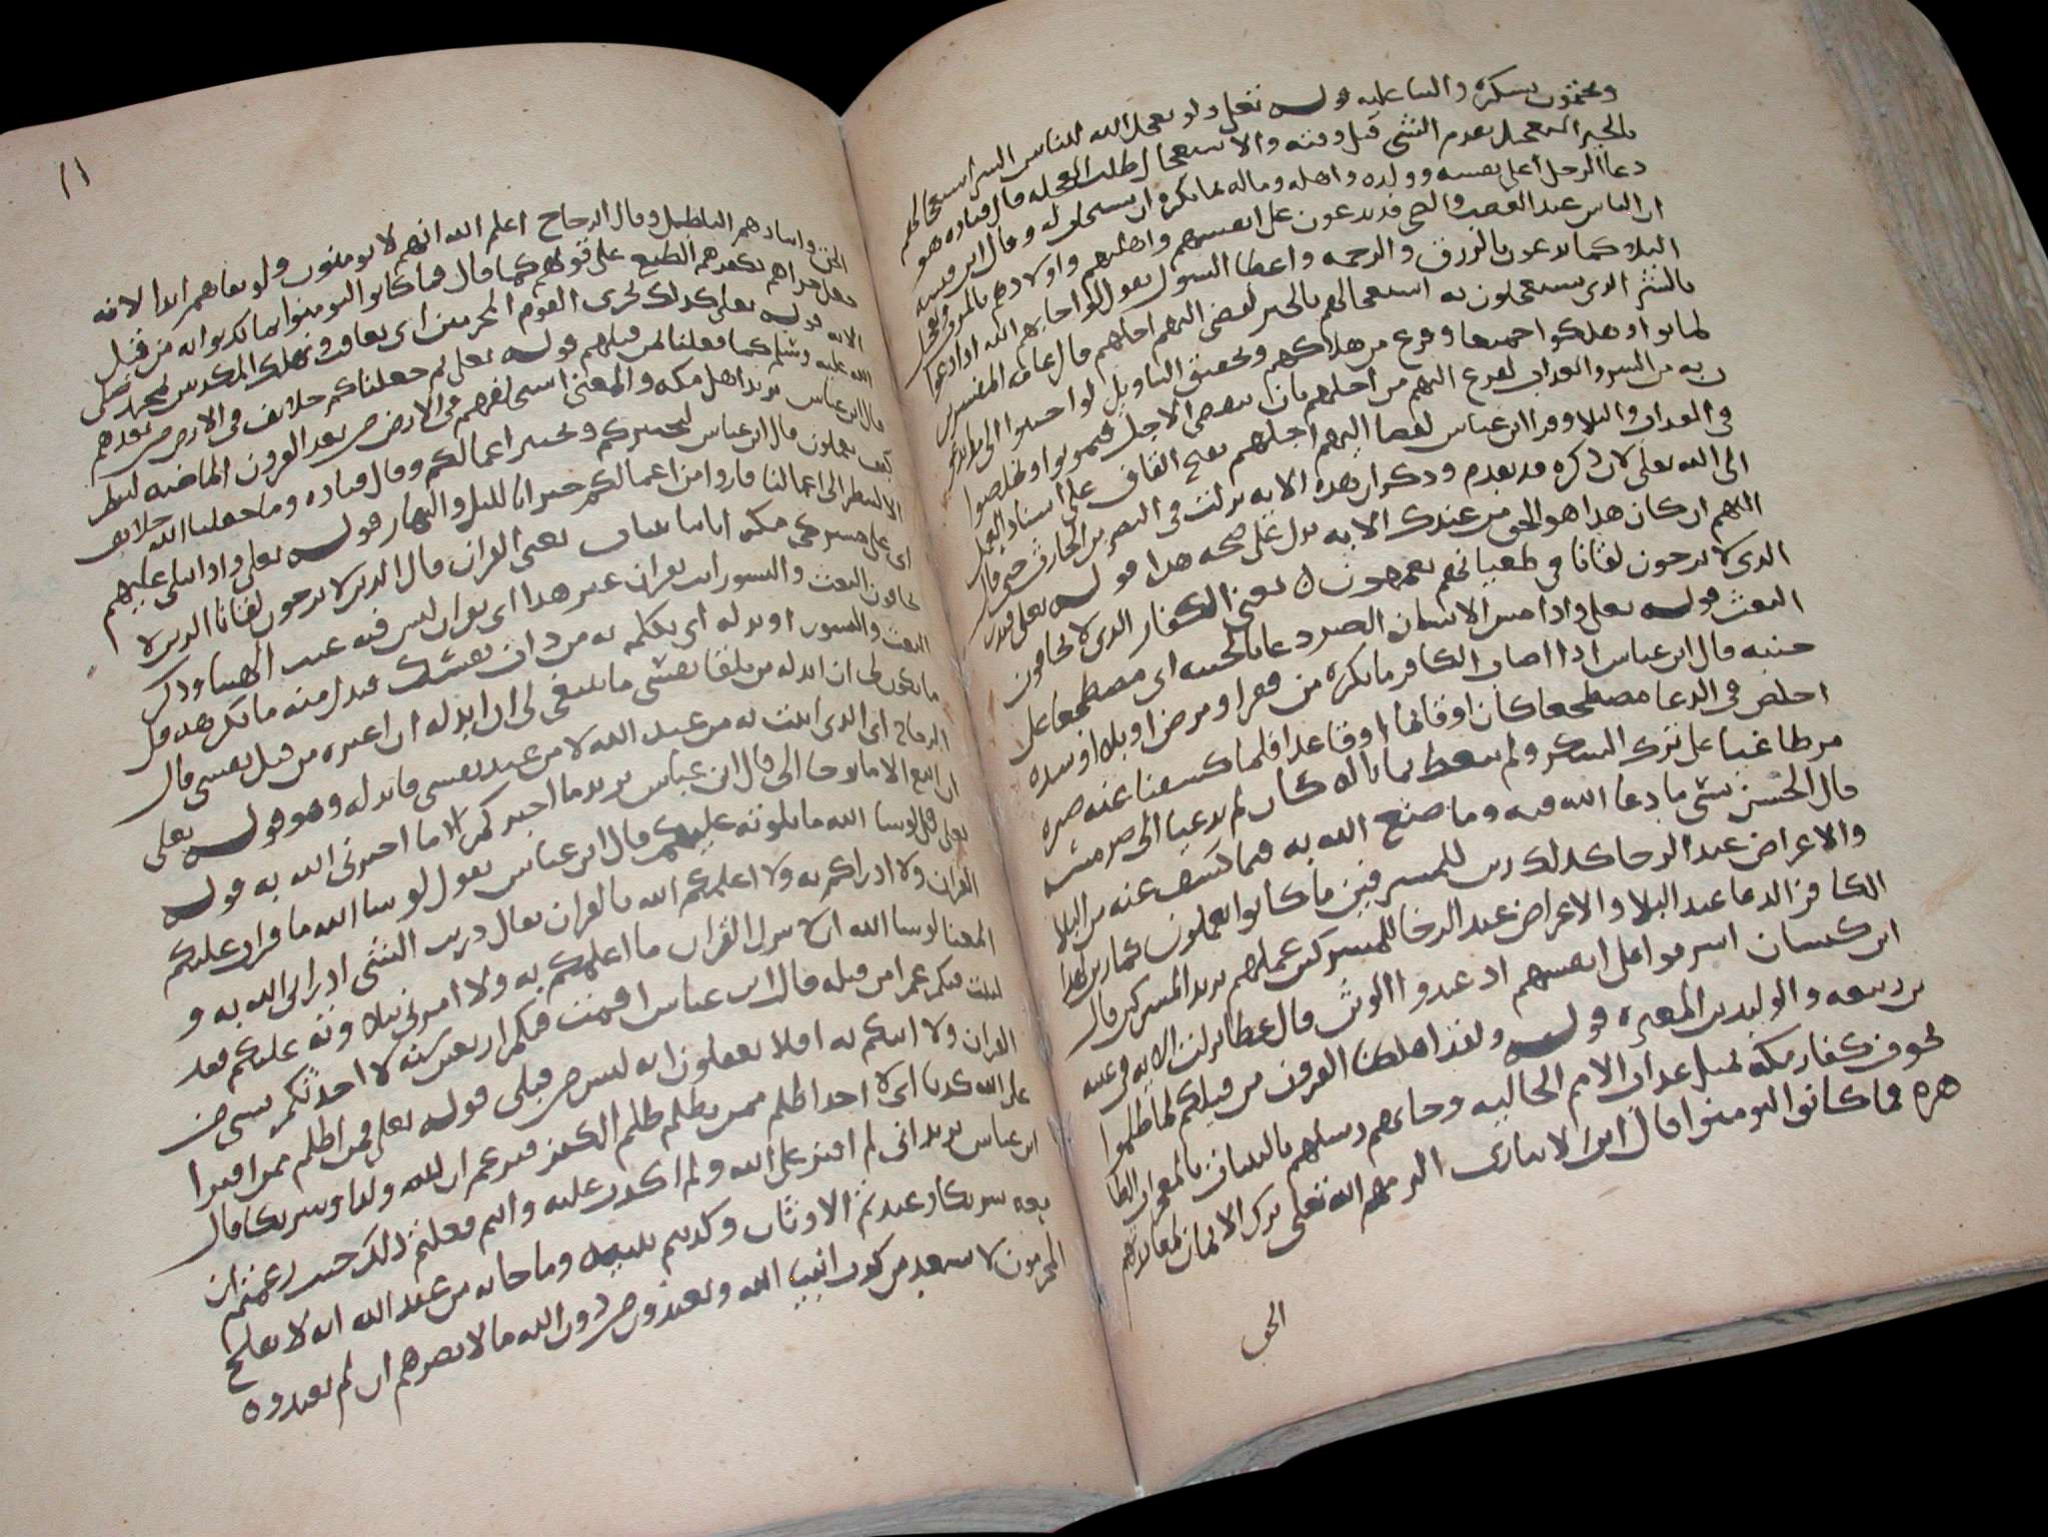 ويختمون بشكره والثنا عليه قوله تعلى ولو يعجل الله للناس الشر استعجالهم
بالخير التعجيل تقديم الشي قبل وقته والاستعجال طلب العجلة قال قتاده هو
دعا الرجل على نفسه وولده واهله وماله بما يكره ان يستجاب له وقال ابن قتيبه
ان الناس عند الغضب والضجر قد يدعون على انفسهم واهليهم واولادهم بالموت وتعجل
البلا كما يدعون بالرزق والرحمه واعطا السول يقول لو اجابهم الله اذا دعوا
بالشر الذي يستعجلون به استعجالهم بالخير لقضي اليهم اجلهم قال عامة المفسرين
لماتوا وهلكوا جميعا وفرغ من هلاكهم وتحقيق التاويل لو اجيبوا الى ما يدعو
ن به من الشر والعذاب لفرغ اليهم من اجلهم بان ينقضي الاجل فيموتوا ويخلصوا
في العذاب والبلا وقرا ابن عباس لقضا اليهم اجلهم بفتح القاف على اسناد الفعل
الى الله تعلى لان ذكره قد تقدم وذكر ان هذه الايه نزلت في النضر بن الحارث حين قال
اللهم ان كان هذا هو الحق من عندك الايه يدل على صحه هذا قوله تعلى فنذر
الذي لا يرجون لقانا في طغيانهم يعمهون يعني الكفار الذي لا يخافون
البعث قوله تعلى واذا مس الانسان الضر دعانا لجنبه اي مضطجعا على
جنبه قال ابن عباس اذا اصاب الكافر ما يكره من فقر او مرض او بلا او شده
اخلص في الدعا مضطجعا كان او قائما او قاعدا فلما كشفنا عنه ضره
مر طاغيا على ترك الشكر ولم يتعظ بما ناله كان لم يدعنا الى ضر مسه
قال الحسن نسي ما دعا الله فيه وما صنع الله به فيما كشف عنه من البلا
والاعراض عند الرخا كذلك زين للمسرفين ما كانوا يعملون كما زين لهذا
الكافر الدعا عند البلا والاعراض عند الرخا للمشركين عملهم يريد المشركين قال
ابن كيسان اسرفوا على انفسهم اذ عبدوا الوثن قال عطا نزلت الايه في عتبه
بن ربيعه والوليد بن المغيره قوله ولقد اهلكنا القرون من قبلكم لما ظلموا
يخوف كفار مكه بمثل عذاب الامم الخاليه وجاءتهم رسلهم بالبينات
هره فما كانوا ليومنوا قال ابن الانباري الزمهم الله تعلى ترك الايمان
الحق
١١
الحق وايثارهم الباطل وقال الزجاج اعلم الله انهم لا يومنون ولو بقاهم ابدا لانه
جعل جزاهم بكفرهم الطبع على قلوبهم كما قال فما كانوا ليومنوا بما كذبوا به من قبل
الايه قوله تعلى كذلك نجزي القوم المجرمين اي نعاقب ونهلك المكذبين لمحمد صلى
الله عليه وسلم كما فعلنا بمن قبلهم قوله تعلى ثم جعلناكم خلائف في الارض من بعدهم
قال ابن عباس يريد اهل مكه والمعنى استخلفهم في الارض من بعد القرون الماضيه لننظر
كيف تعملون قال ابن عباس ليختبركم ونختبر اعمالكم وقال قتاده وما جعلنا الله خلائف
الا لينظر الى اعمالنا فاروا من اعمالكم خيرا بالليل والنهار قوله تعلى واذا تتلى عليهم
اي على مشركي مكه اياتنا بينات يعني القران قال الذين لا يرجون لقانا الذين لا
يخافون البعث والنشور ايت بقران غير هذا اي بقران ليس فيه عيب الهتنا وذكر
البعث والنشور او بدله اي تكلم به من ذات نفسك فبدل منه ما نكرهه قل
ما يكون لي ان ابدله من تلقا نفسي ما ينبغي لي ان ابدله ان اغيره من قبل نفسي قال
الزجاج اي الذي اتيت به من عند الله لا من عند نفسي فابدله وهو قوله تعلى
ان اتبع الا ما يوحا الي قال ابن عباس يريد ما اخبركم الا ما اخبرني الله به قوله
تعلى قل لو شا الله ما تلوته عليكم قال ابن عباس يقول لو شا الله ما قرات عليكم
القران ولا ادراكم به ولا اعلمكم الله بالقران يقال دريت الشي ادراني الله به و
المعنا لو شا الله ان لا ينزل القران ما اعلمكم به ولا امرني بتلاوته عليكم فقد
لبثت فيكم عمرا من قبله قال ابن عباس اقمت فيكم اربعين سنه لا احدثكم بشي من
القران ولا اتيكم به افلا تعقلون انه ليس من قبلي قوله تعلى فمن اظلم ممن افترا
على الله كذبا اي لا احد اظلم ممن يظلم ظلم الكفر فيزعم ان لله ولدا وشريكا قال
ابن عباس يريد اني لم افتر على الله ولم اكذب عليه وانتم فعلتم ذلك حيث زعمتم ان
معه شريكا وعبدتم الاوثان وكذبتم نبيه وما جا به من عند الله انه لا يفلح
المجرمون لا يسعد من كذب انبيا الله ويعبدون من دون الله ما لا يضرهم ان لم يعبدوه